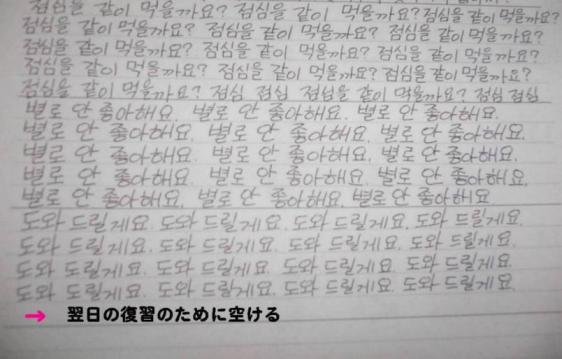 점심을 같이 먹을까요? 점심을 같이 먹을까요? 점심을 같이 먹을까요?
점심을 같이 먹을까요? 점심을 같이 먹을까요? 점심을 같이 먹을까요?
점심을 같이 먹을까요? 점심을 같이 먹을까요? 점심을 같이 먹을까요?
점심을 같이 먹을까요? 점심을 같이 먹을까요? 점심을 같이 먹을까요?
점심을 같이 먹을까요? 점심 점심 점심을 같이 먹을까요? 점심 점심
별로 안 좋아해요. 별로 안 좋아해요. 별로 안 좋아해요.
별로 안 좋아해요. 별로 안 좋아해요. 별로 안 좋아해요.
별로 안 좋아해요. 별로 안 좋아해요. 별로 안 좋아해요.
별로 안 좋아해요. 별로 안 좋아해요. 별로 안 좋아해요.
별로 안 좋아해요. 별로 안 좋아해요. 별로 안 좋아해요
도와 드릴게요. 도와 드릴게요. 도와 드릴게요. 도와 드릴게요.
도와 드릴게요. 도와 드릴게요. 도와 드릴게요. 도와 드릴게요.
도와 드릴게요. 도와 드릴게요. 도와 드릴게요. 도와 드릴게요.
도와 드릴게요. 도와 드릴게요. 도와 드릴게요. 도와 드릴게요.
→ 翌日の復習のために空ける